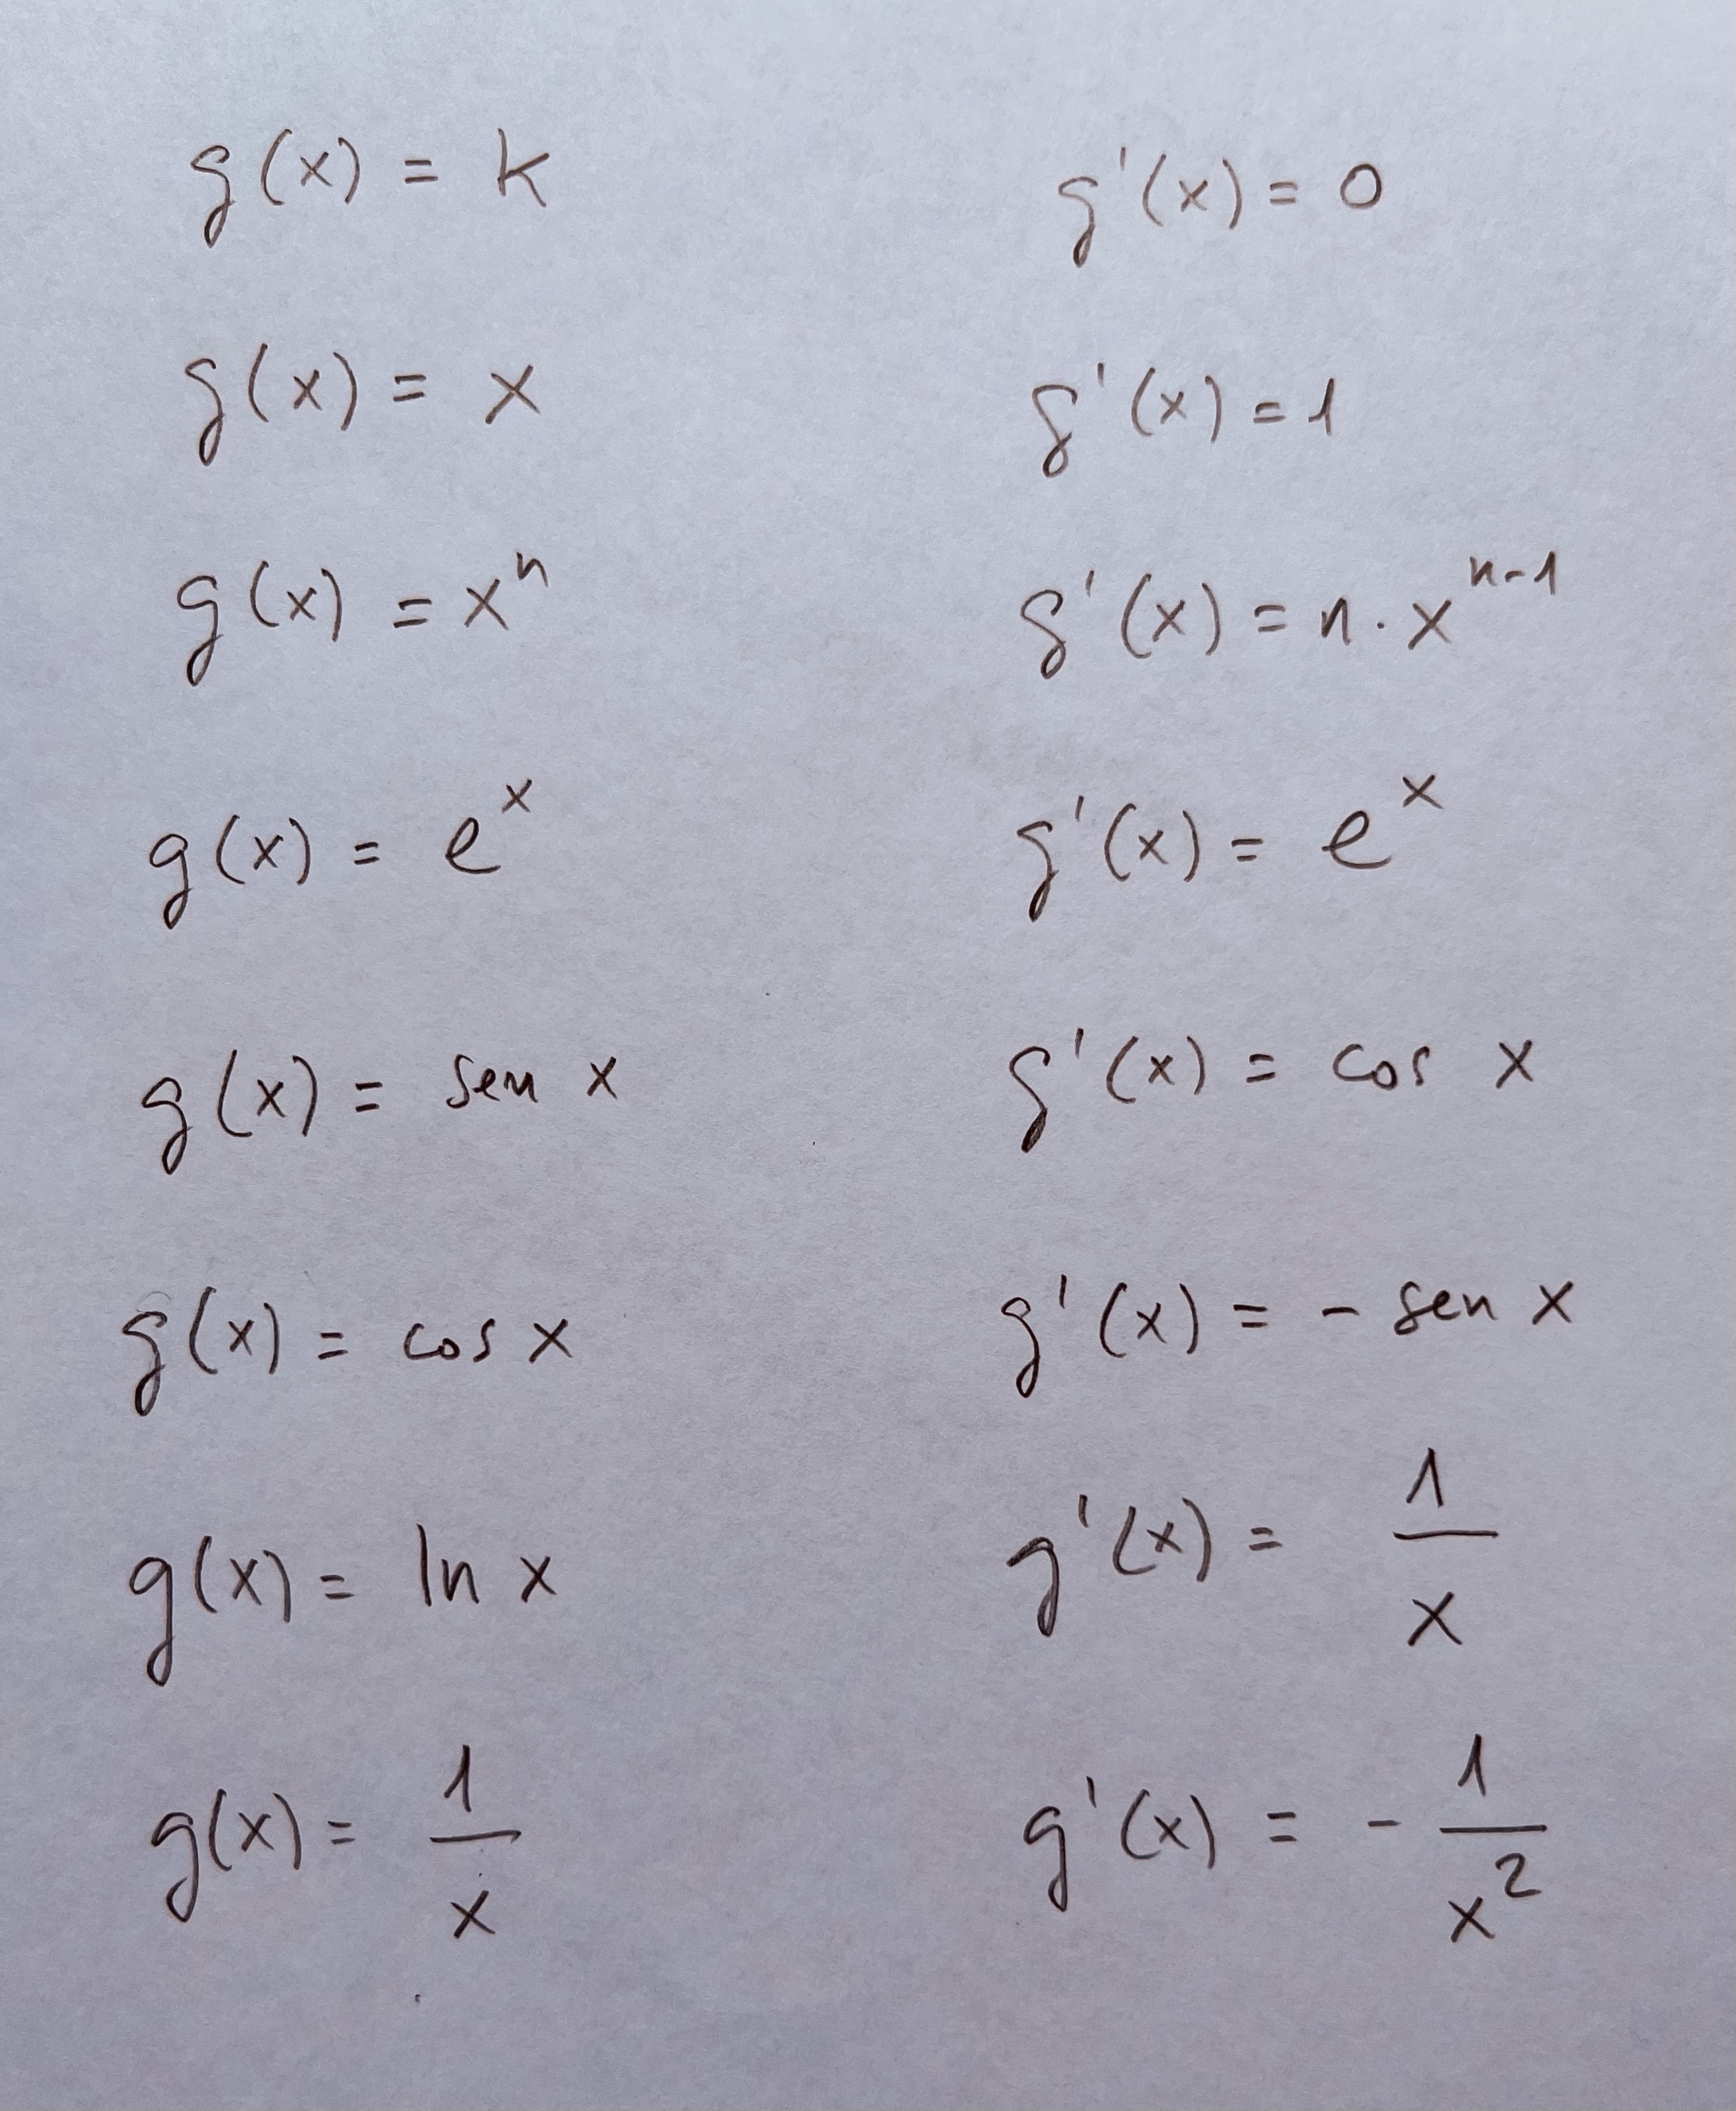 g(x) = k g'(x) = 0
g(x) = x g'(x) = 1
g(x) = xⁿ g'(x) = n · xⁿ⁻¹
g(x) = eˣ g'(x) = eˣ
g(x) = sen x g'(x) = cos x
g(x) = cos x g'(x) = - sen x
g(x) = ln x g'(x) = 1/x
g(x) = 1/x g'(x) = - 1/x²